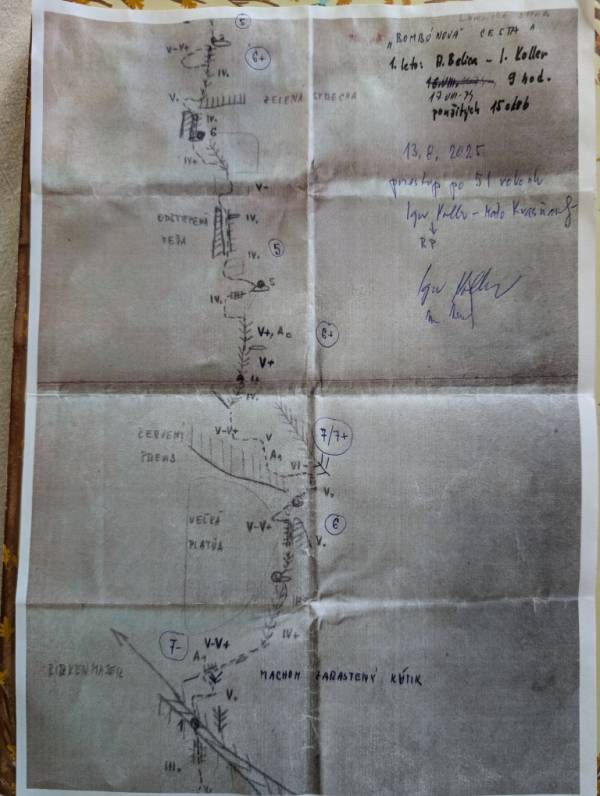 5
V-V+
6+
IV.
V.
ZELENÁ STRECHA
IV.
6
IV+
V-
IV.
ODŠTIEPENÁ
VEŽA
IV.
5
5
IV.
V+, A0
6+
V+
4
IV.
V-V+
V
ČERVENÝ
PREVIS
A1
VI-
7/7+
V.
V-V+
6
VEĽKÁ
PLATŇA
V.
III.
IV+
7-
V-V+
A1
BIRKENMAJER
V.
MACHOM ZARASTENÝ KÚTIK
1
III.
„BOMBÓNOVÁ" CESTA
1. leto: A. Belica - I. Koller
17.VIII.74
9 hod.
použitých 15 skôb
13. 8. 2025
prestup po 51 rokoch
Igor Koller -
RP
Igor Koller